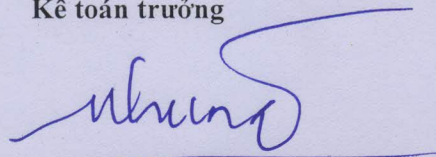 Kế toán trưởng
Nhung